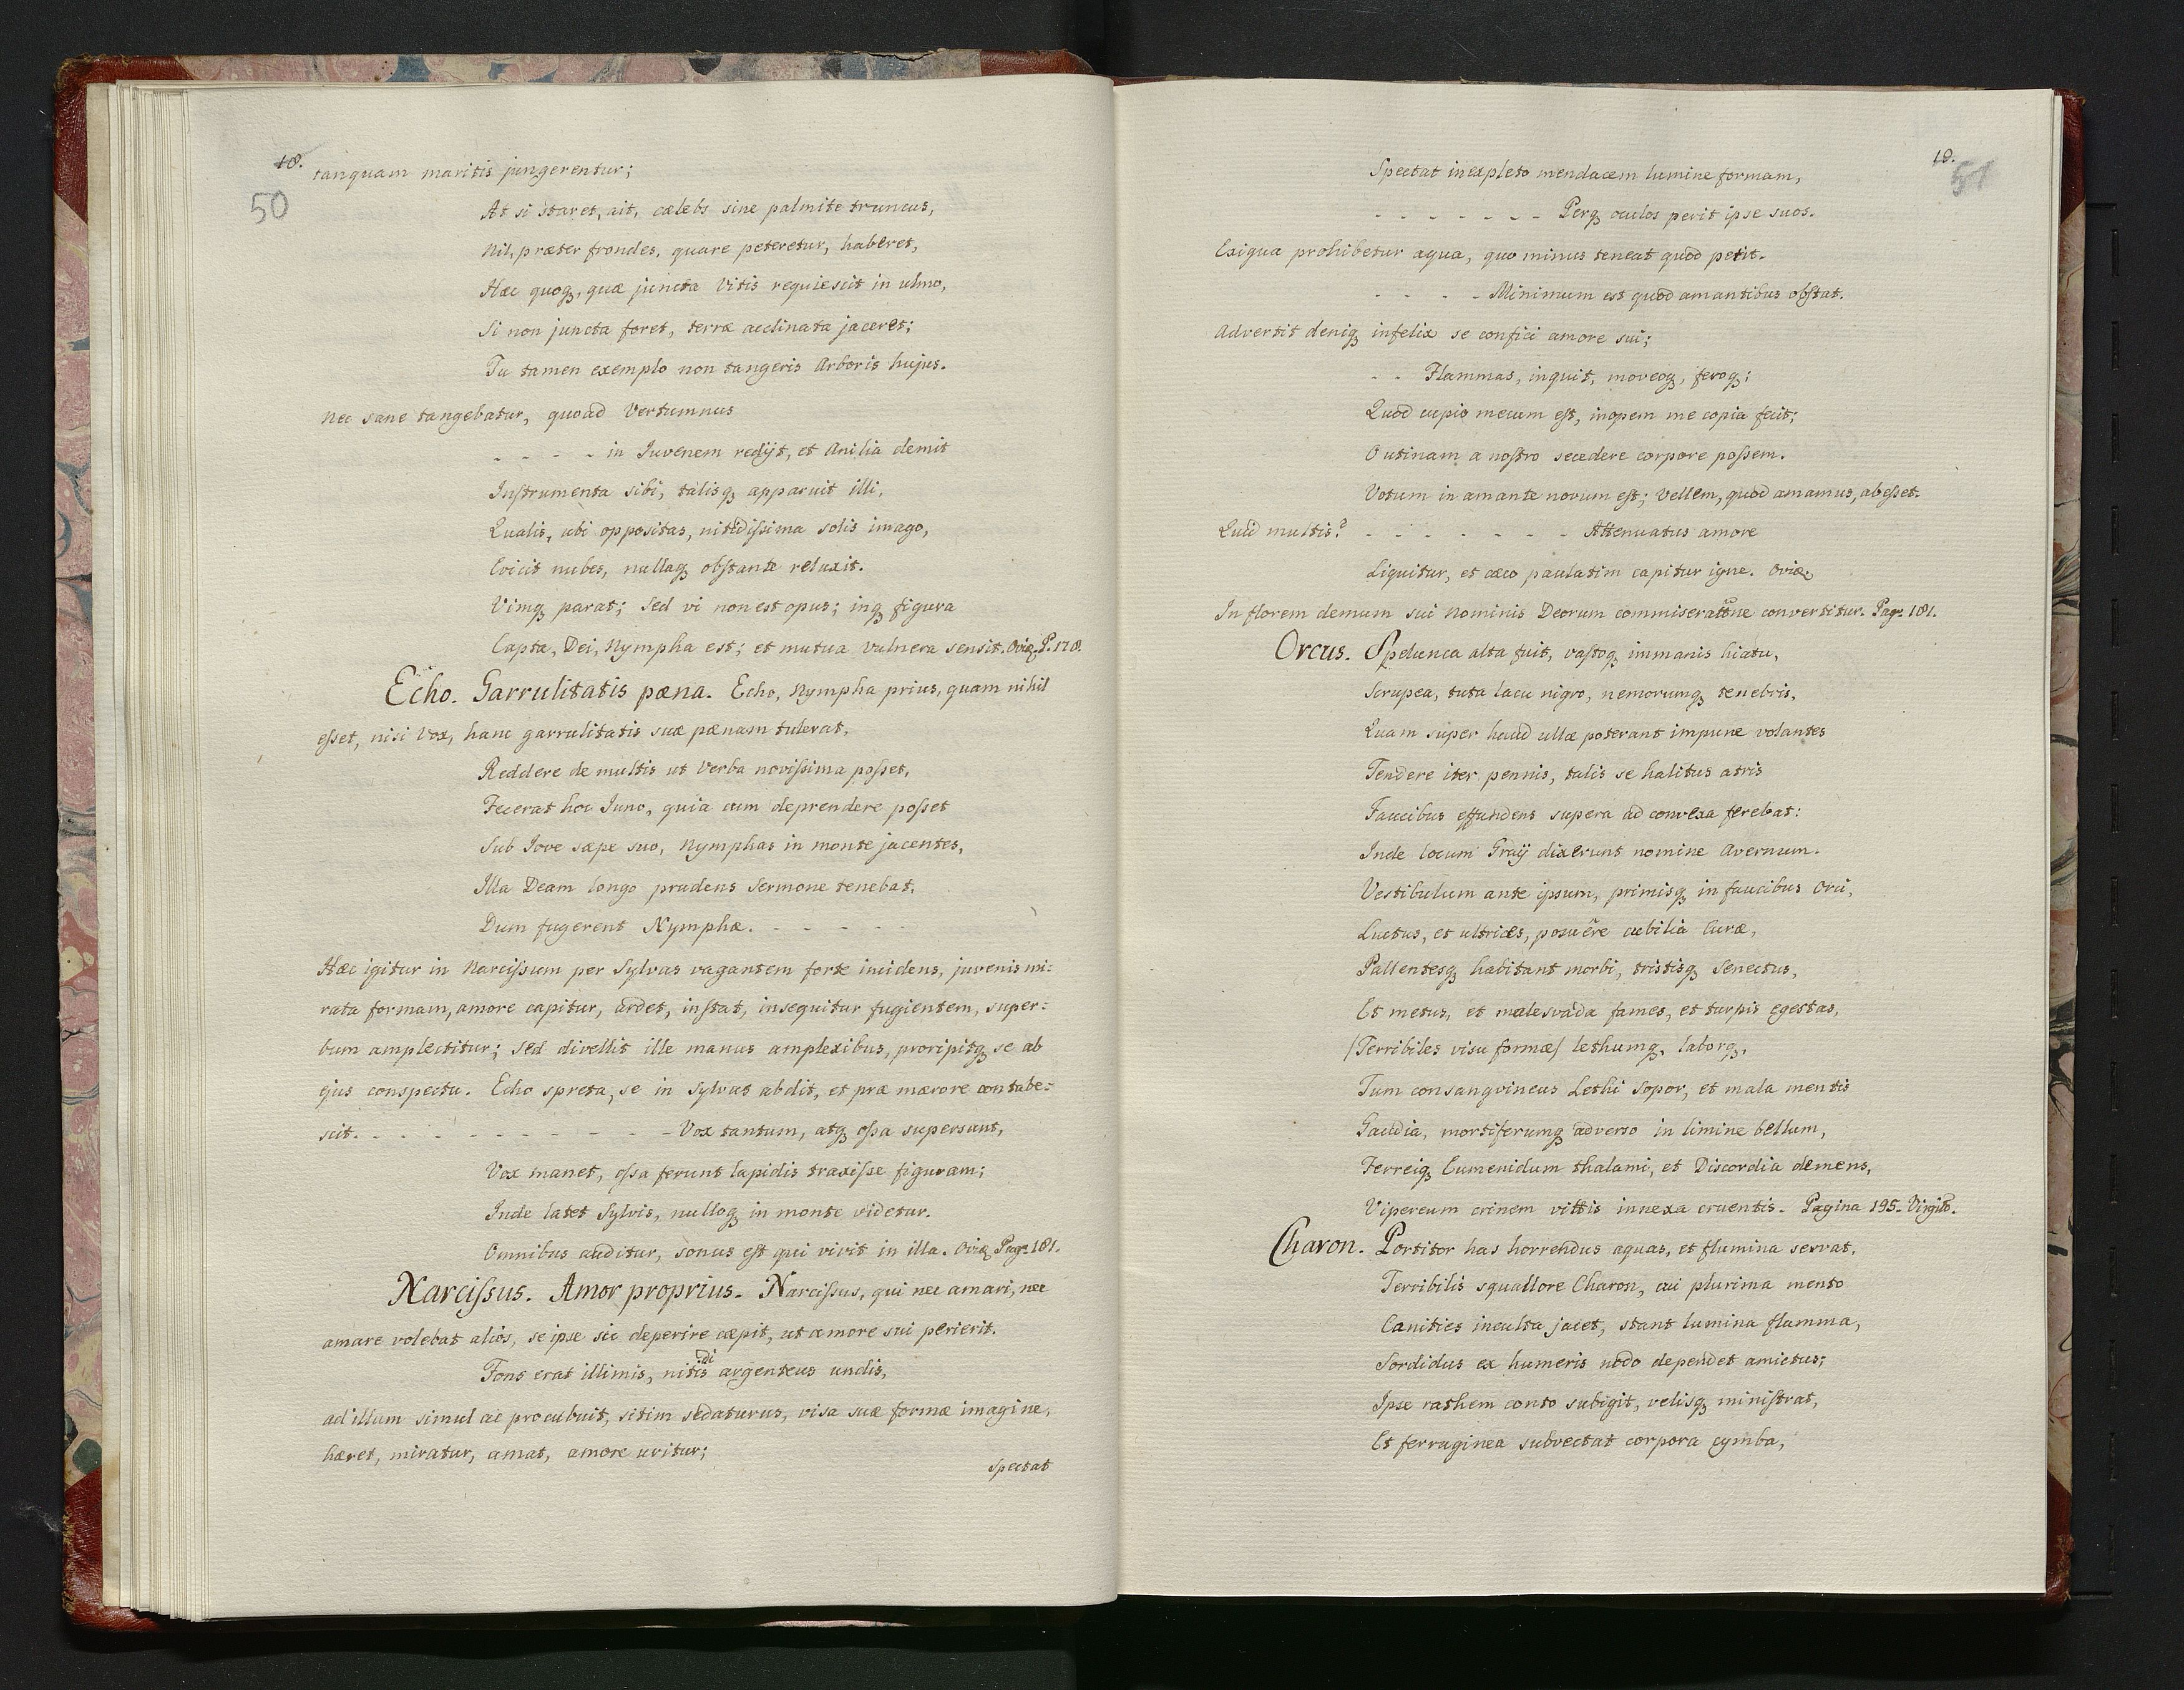 18.
50
tanquam maritis jungerentur;
At si staret, ait, cælebs sine palmite truncus,
Nil, præter frondes, quare peteretur, haberet,
Hæc quoq, quæ juncta Vitis requiescit in ulmo,
Si non juncta foret, terræ acclinata jaceret;
Tu tamen exemplo non tangeris Arboris hujus.
Nec sane tangebatur, quoad Vertumnus
- - - - in Juvenem redijt, et Anilia demit
Instrumenta sibi, talisq apparuit illi,
Qualis, ubi oppositas, nitidissima solis imago,
Evicit nubes, nullaq obstante reluxit.
Vimq parat; sed vi non est opus; inq figura
Capta, Dei, Nympha est; et mutua vulnera sensit. Ovid. P. 178.
Echo. Garrulitatis pæna. Echo, Nympha prius, quam nihil
esset, nisi Vox, hanc garrulitatis suæ pænam tulerat,
Reddere de multis ut Verba novissima posset,
Fecerat hoc Juno, quia cum deprendere posset
Sub Jove sæpe suo, Nymphas in monte jacentes,
Illa Deam longo prudens Sermone tenebat,
Dum fugerent Nymphæ. - - - - -
Hæc igitur in Narcissum per Sylvas vagantem forte incidens, juvenis mi:
rata formam, amore capitur, ardet, instat, insequitur fugientem, super:
bum amplectitur; Sed divellit ille manus amplexibus, proripitq se ab
ejus conspectu. Echo spreta, se in Sylvas abdit, et præ mærore contabe:
scit. - - - - - - - - - - - Vox tantum, atq ossa supersunt,
Vox manet, ossa ferunt lapidis traxisse figuram;
Inde latet Sylvis, nulloq in monte videtur.
Omnibus auditur, sonus est qui vivit in illa. Ovid. Pag. 181.
Narcissus. Amor proprius. Narcissus, qui nec amari, nec
amare volebat alios, se ipse sic deperire cæpit, ut amore sui perierit.
di
Fons erat illimis, nitis argenteus undis,
ad illum simul ac procubuit, sitim sedaturus, visa suæ formæ imagine,
hæret, miratur, amat, amore uritur;
Spectat
19.
51
Spectat inexpleto mendacem lumine formam,
- - - - - - - Perq oculos perit ipse suos.
Exigua prohibetur aqua, quo minus teneat quod petit.
- - - - Minimum est quod amantibus obstat.
Advertit deniq infelix se confici amore sui;
- - Flammas, inquit, moveoq, feroq;
Quod cupio mecum est, inopem me copia fecit;
O utinam a nostro secedere corpore possem.
Votum in amante novum est; Vellem, quod amamus, abesset.
Quid multis? - - - - - - - Attenuatus amore
Liquitur, et cæco paulatim capitur igne. Ovid.
In florem demum sui Nominis Deorum commiseratione convertitur. Pag. 181.
Orcus. Spelunca alta fuit, vastoq immanis hiatu,
Scrupea, tuta lacu nigro, nemorumq tenebris,
Quam super haud ullæ poterant impune volantes
Tendere iter pennis, talis se halitus atris
Faucibus effundens supera ad convexa ferebat:
Inde locum Graij dixerunt nomine Avernum.
Vestibulum ante ipsum, primisq in faucibus Orci,
Luctus, et ultrices, posuêre cubilia Curæ,
Pallentesq habitant morbi, tristisq Senectus,
Et metus, et malesvada fames, et turpis egestas,
/Terribiles visu formæ/ lethumq, laborq,
Tum consangvineus Lethi Sopor, et mala mentis
Gaudia, mortiferumq adverso in limine bellum,
Ferreiq Eumenidum thalami, et Discordia demens,
Vipereum crinem vittis innexa cruentis. Pagina 195. Virgil.
Charon. Portitor has horrendus aquas, et flumina servat,
Terribilis squallore Charon, cui plurima mento
Canities inculta jacet, stant lumina flamma,
Sordidus ex humeris nodo dependet amictus;
Ipse rathem conto subigit, velisq ministrat,
Et ferruginea subvectat corpora cymba,